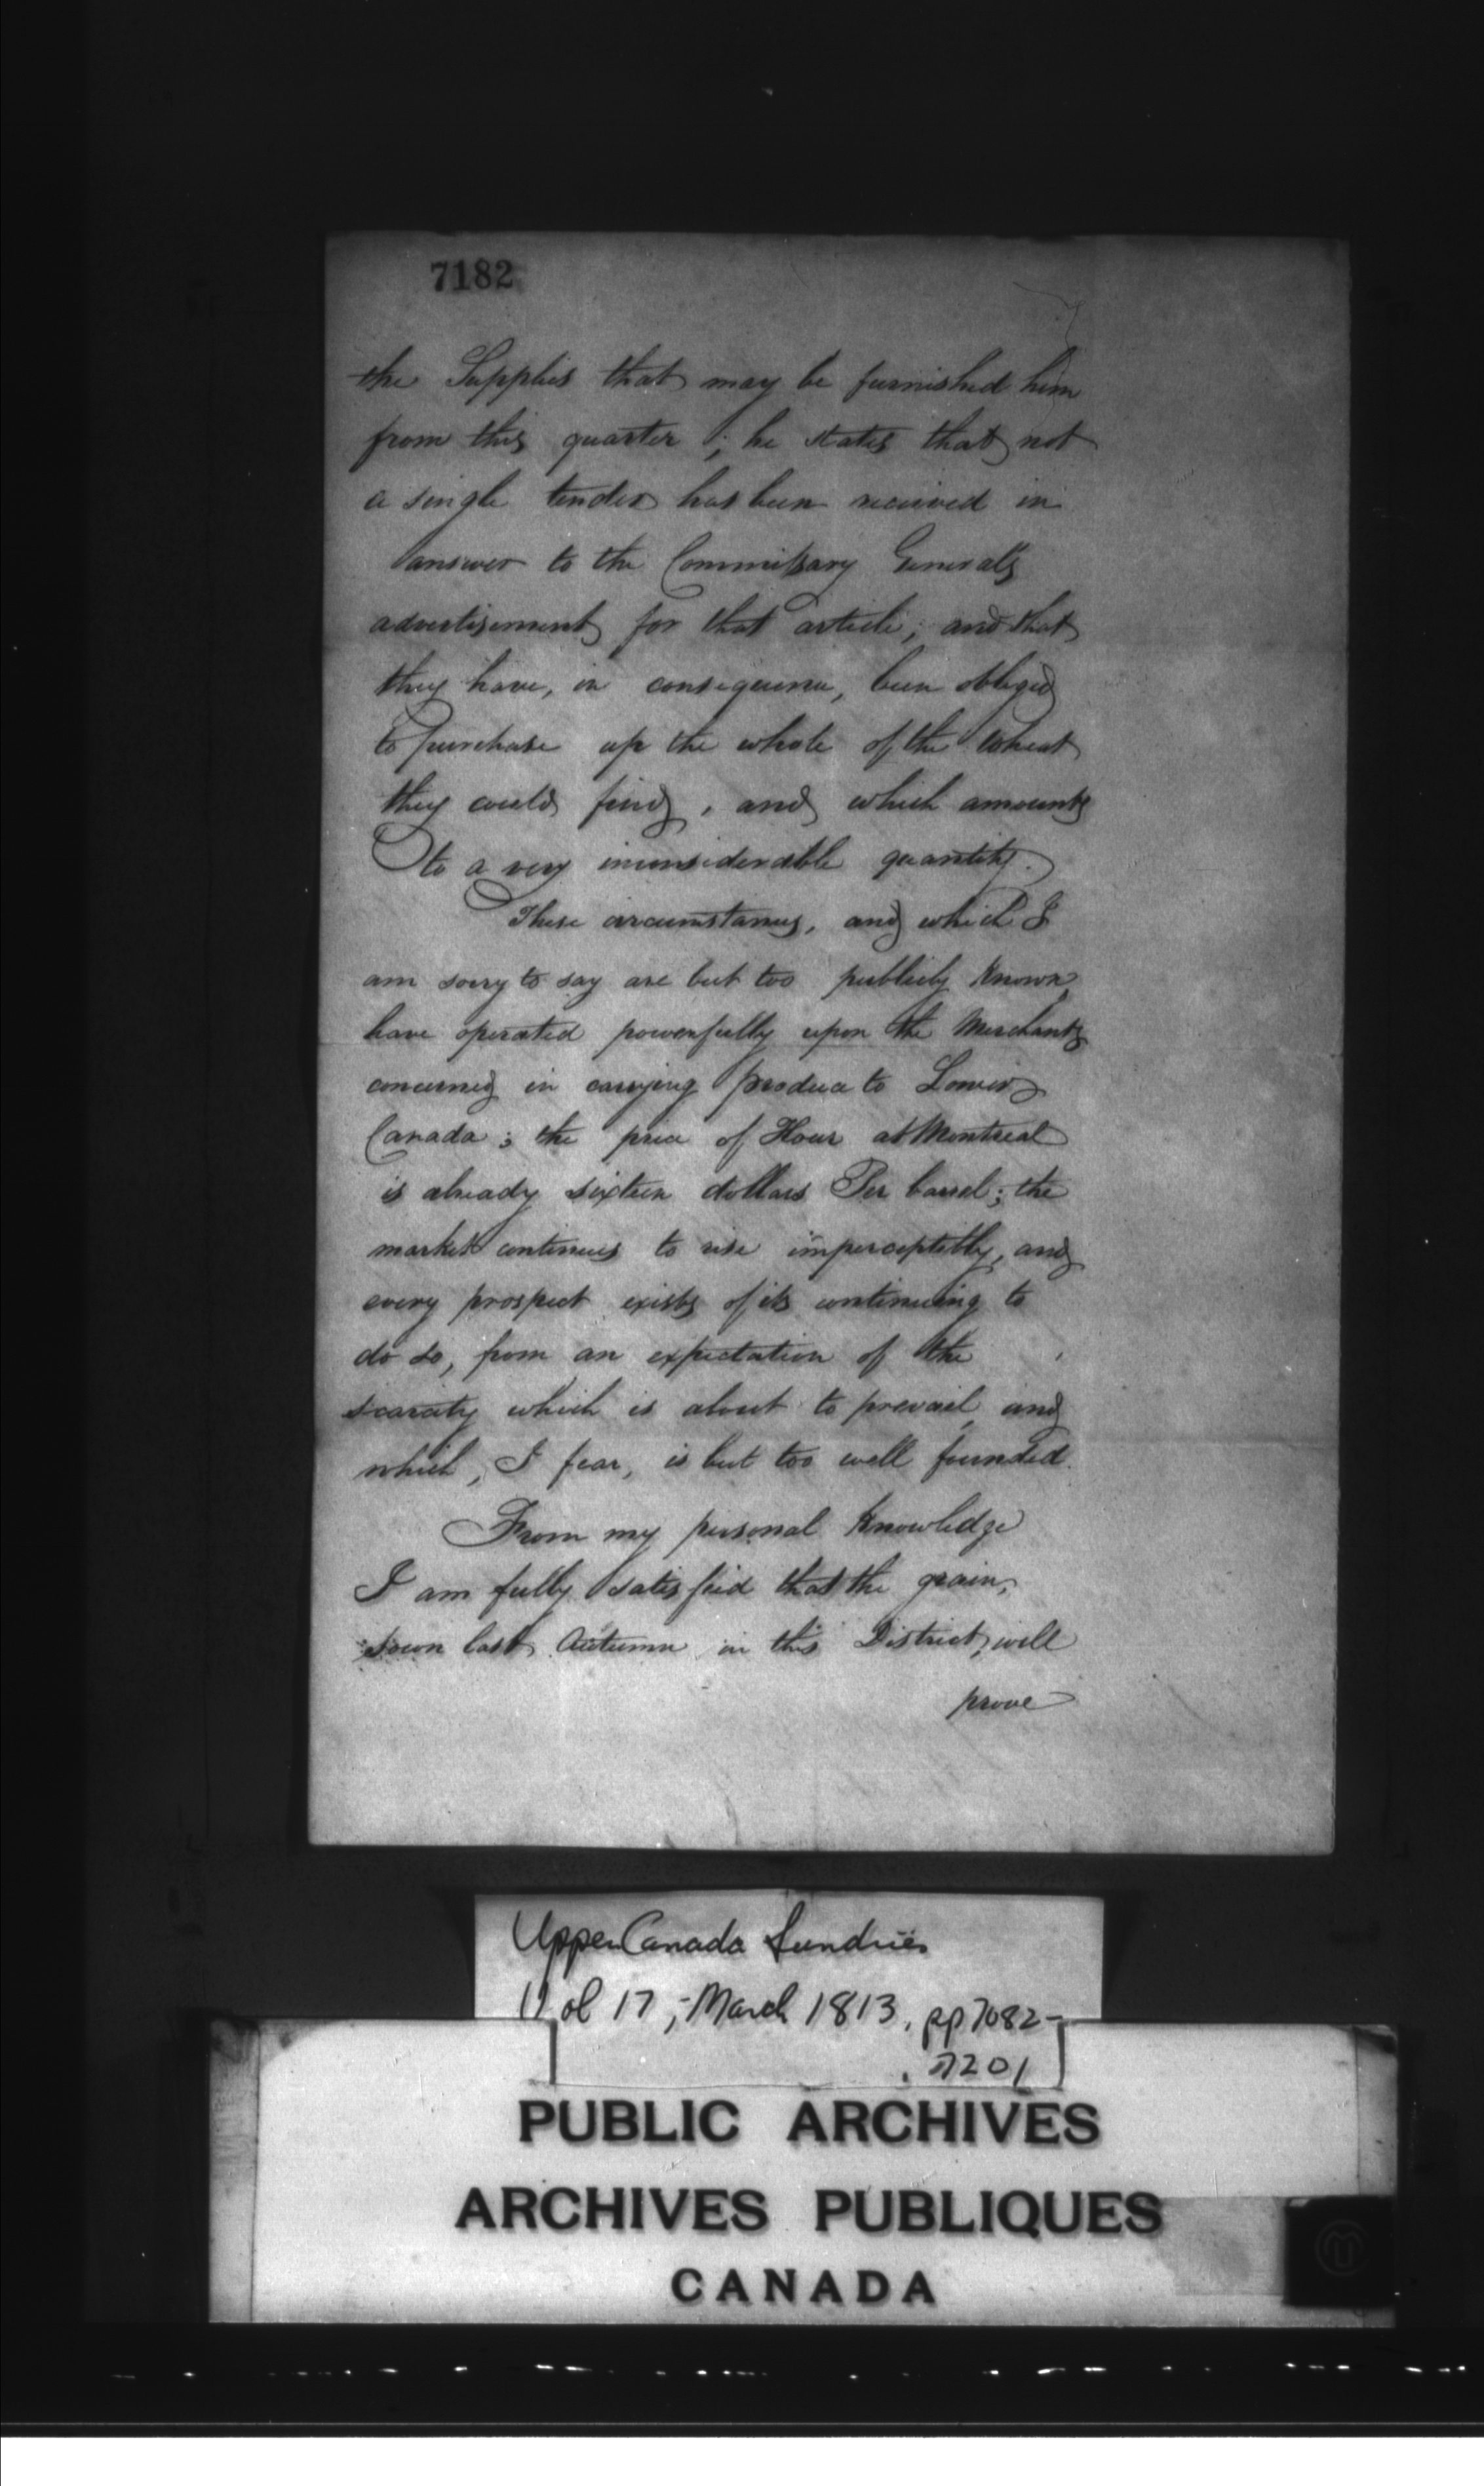 7182
the Supplies that may be furnished him
from this quarter; he states that not
a single tender has been received in
answer to the Commissary General's
advertisement for that article; and that
they have, in consequence, been obliged
to purchase up the whole of the Wheat
they could find, and which amounts
to a very inconsiderable quantity.
These circumstances, and which I
am sorry to say are but too publicly known,
have operated powerfully upon the Merchants
concerned in carrying produce to Lower
Canada; the price of Flour at Montreal
is already sixteen dollars Per barrel; the
market continues to rise imperceptibly, and
every prospect exists of its continuing to
do so, from an expectation of the
scarcity which is about to prevail, and
which, I fear, is but too well founded.
From my personal knowledge
I am fully satisfied that the grain,
sown last Autumn in this District, will
prove
Upper Canada Sundries
Vol 17, March 1813, pp 7082-
7201
PUBLIC ARCHIVES
ARCHIVES PUBLIQUES
CANADA